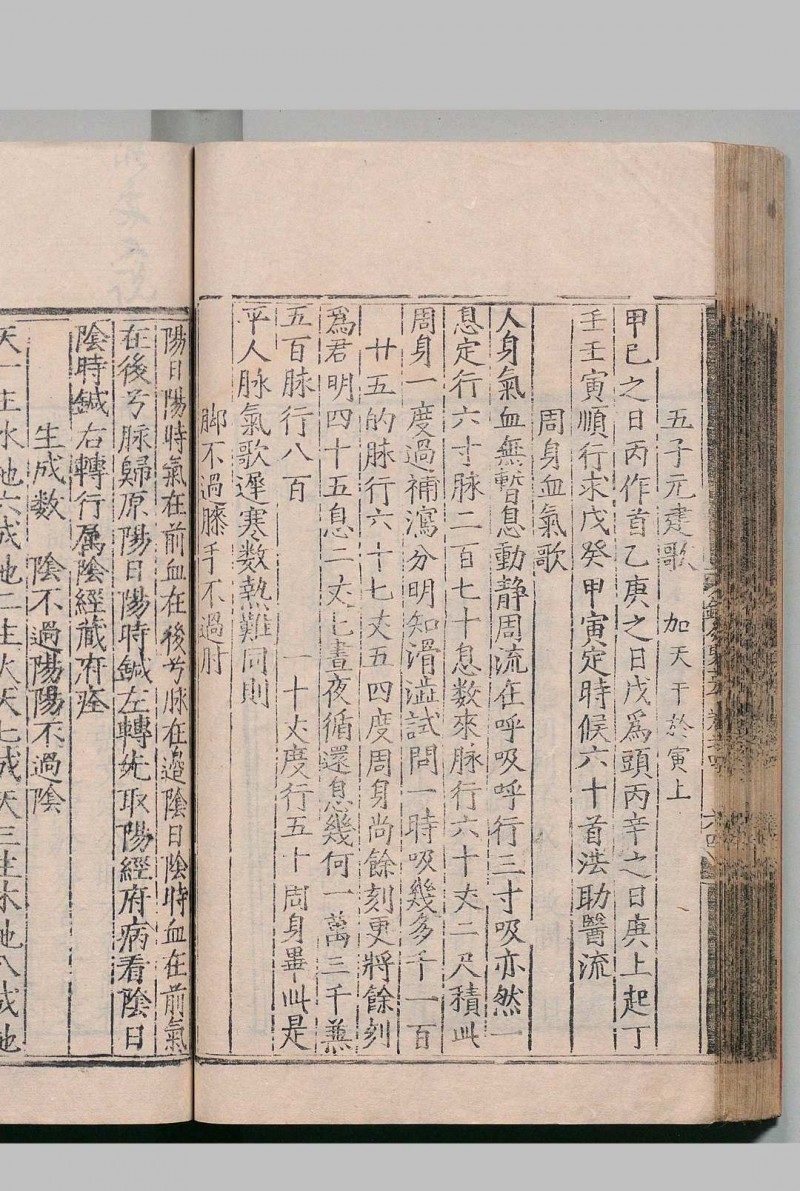 五子元建歌　加天干於寅上
甲己之日丙作首乙庚之日戊爲頭丙辛之日庚上起丁
壬壬寅順行求戊癸甲寅定時候六十首法助醫流
周身血氣歌
人身氣血無暫息動靜周流在呼吸呼行三寸吸亦然一
息定行六寸脉二百七十息数來脉行六十丈二尺積此
周身一度過補瀉分明知滑澁試問一時吸幾多千一百
廿五的脉行六十七丈五四度周身尚餘刻更將餘刻
爲君明四十五息二丈七晝夜循還息幾何一萬三千兼
五百脉行八百一十丈度行五十周身畢此是
平人脉氣歌遲寒数熱難同則
脚不過膝手不過肘
陽日陽時氣在前血在後兮脉在邉陰日陰時血在前氣
在後兮脉歸原陽日陽時鍼左轉先取陽經府病看陰日
陰時鍼右轉行属陰經藏府痊
生成数　陰不過陽陽不過陰
天一生水地六成地二生火天七成天三生木地八成地